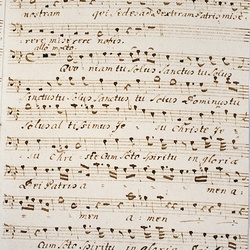 nostram qui sedes ad Dextram Patris mise
rere miserere nobis
allo molto
Quoniam tu solus Sanctus tu Solus
Sanctus tu Solus Sanctus tu Solus Dominus tu
Solus altissimus Je su Christe Je
su Christe cum Scto Spiritu in gloria
Dei Patris a men a
men a men
Cum Scto Spiritu in gloria